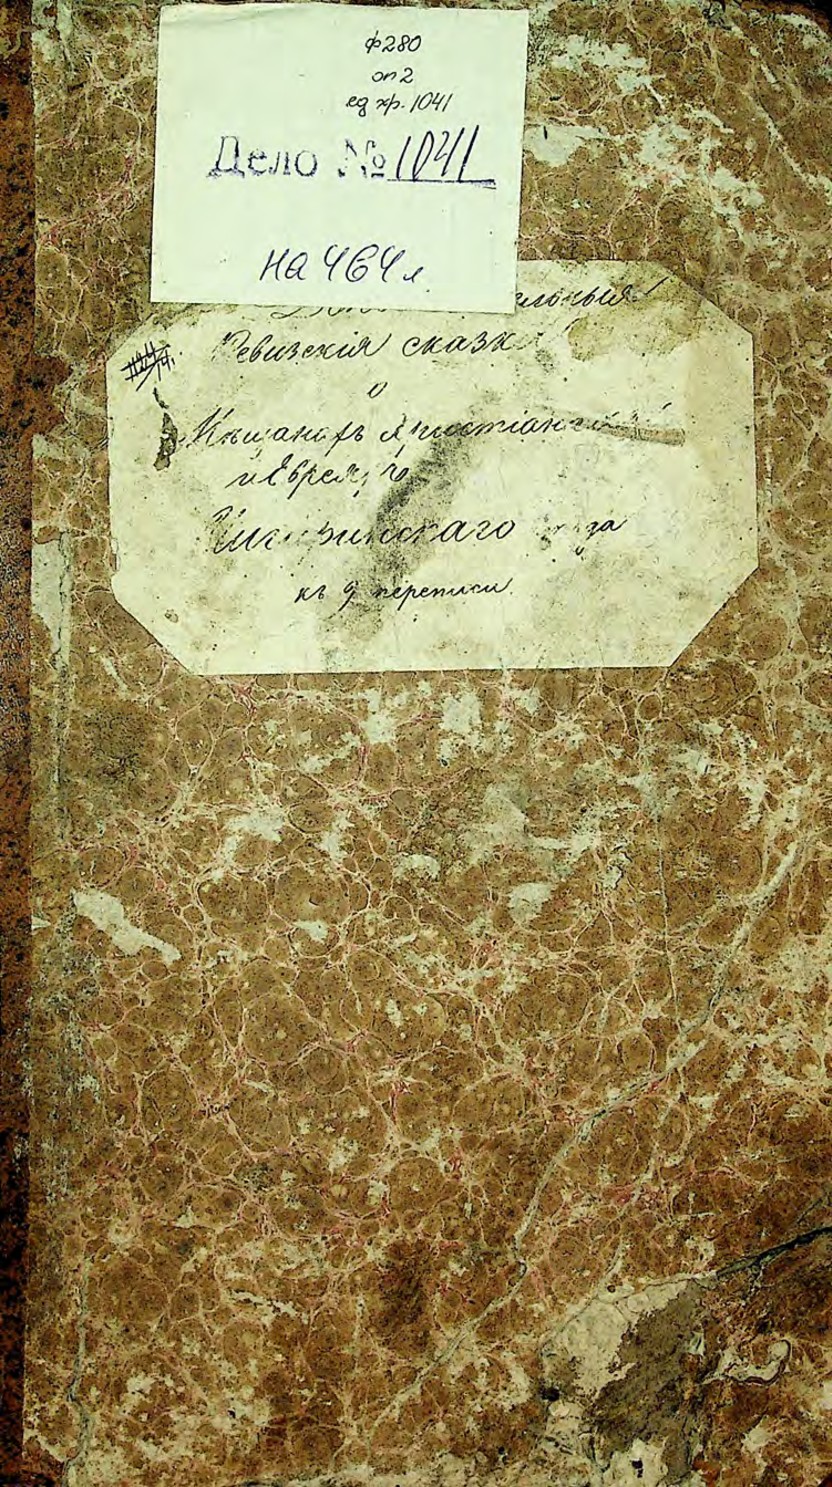 ф280
оп2
ед хр. 1041
Дело № 1041
на 464 л
Ревизскія сказк
о
Мѣщанахъ Христіанах
и Евреях
скаго
къ 9 переписи.